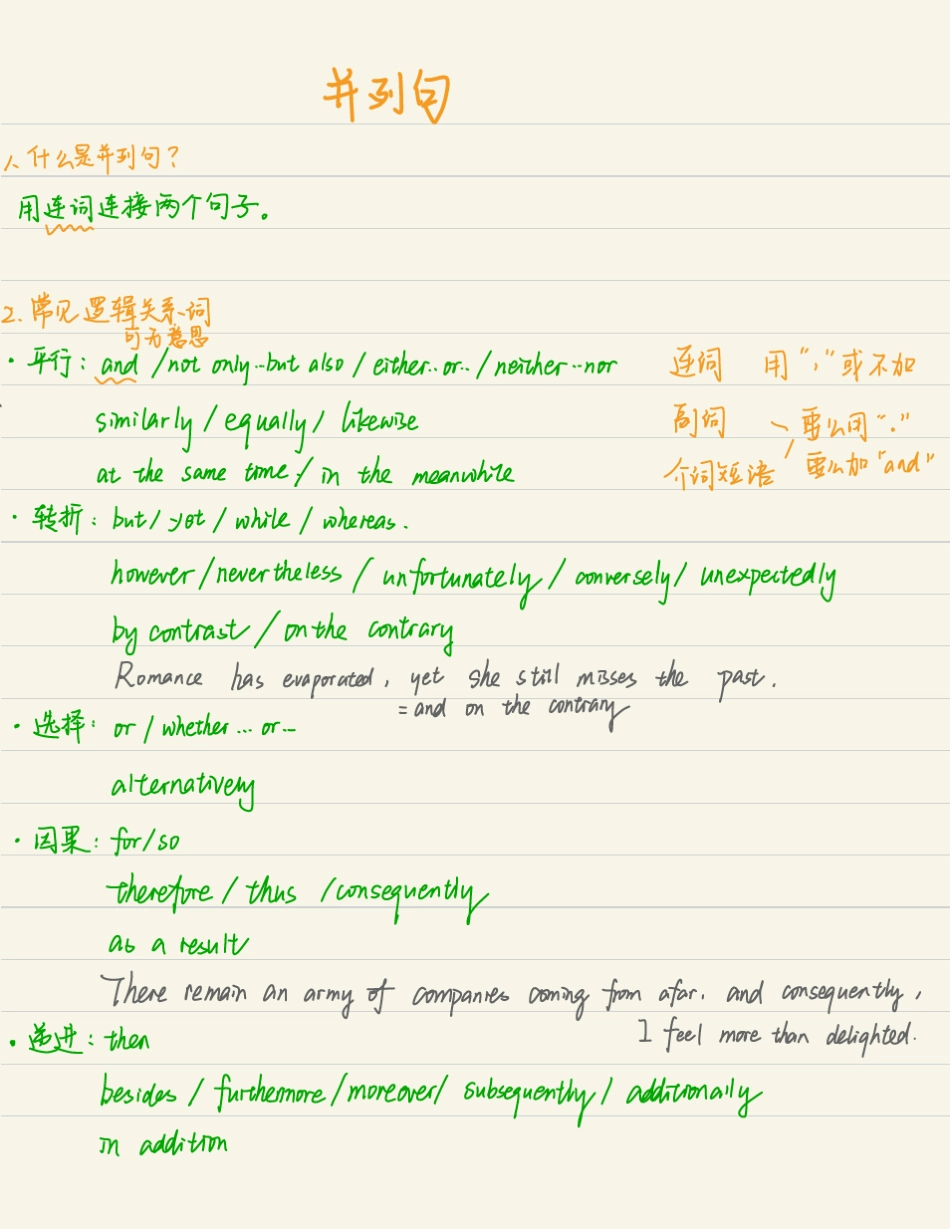 并列句
1、什么是并列句？
用连词连接两个句子。
2.常见逻辑关系词
可无意思
· 平行：and / not only…but also / either..or.. / neither…nor 连词 用“，”或不加
similarly / equally / likewise 副词 要么用“.”
at the same time / in the meanwhile 介词短语 要么加“and”
· 转折：but / yet / while / whereas.
however / nevertheless / unfortunately / conversely / unexpectedly
by contrast / on the contrary
Romance has evaporated, yet she still misses the past.
= and on the contrary
· 选择：or / whether … or…
alternatively
· 因果：for / so
therefore / thus / consequently
as a result
There remain an army of companies coming from afar. and consequently,
I feel more than delighted.
· 递进：then
besides / furthermore / moreover / subsequently / additionally
in addition